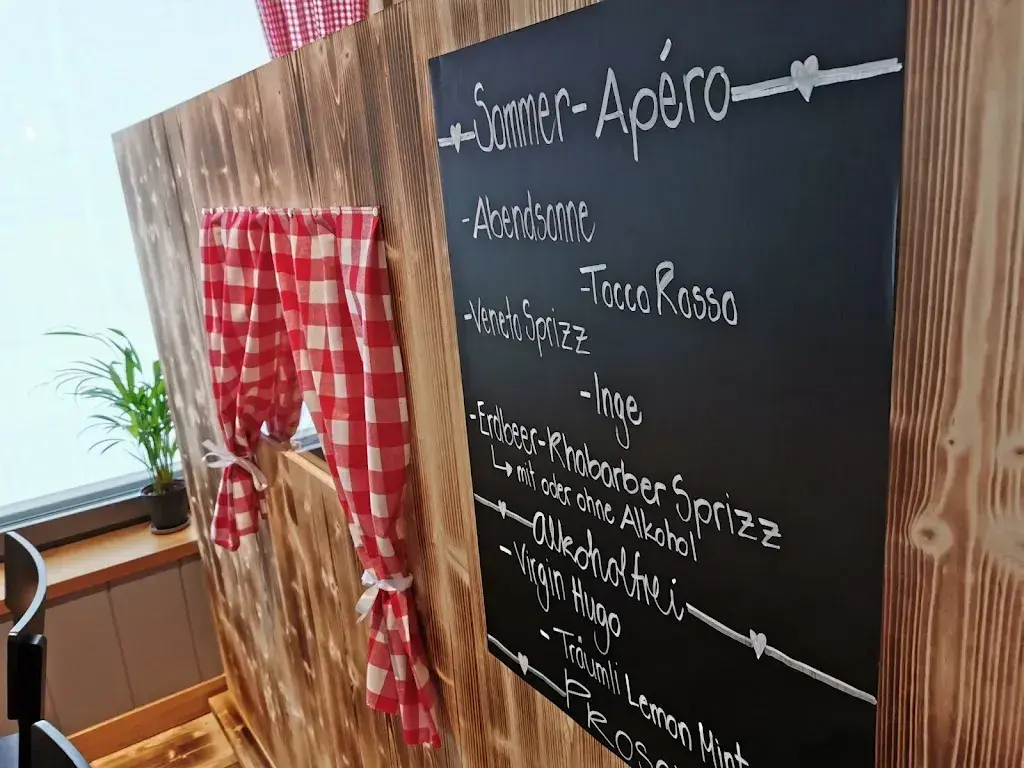 Sommer-Apéro
-Abendsonne
-Tocco Rosso
-Veneto Sprizz
-Inge
-Erdbeer-Rhabarber Sprizz
↳ mit oder ohne Alkohol
Alkoholfrei
-Virgin Hugo
-Träumli Lemon Mint